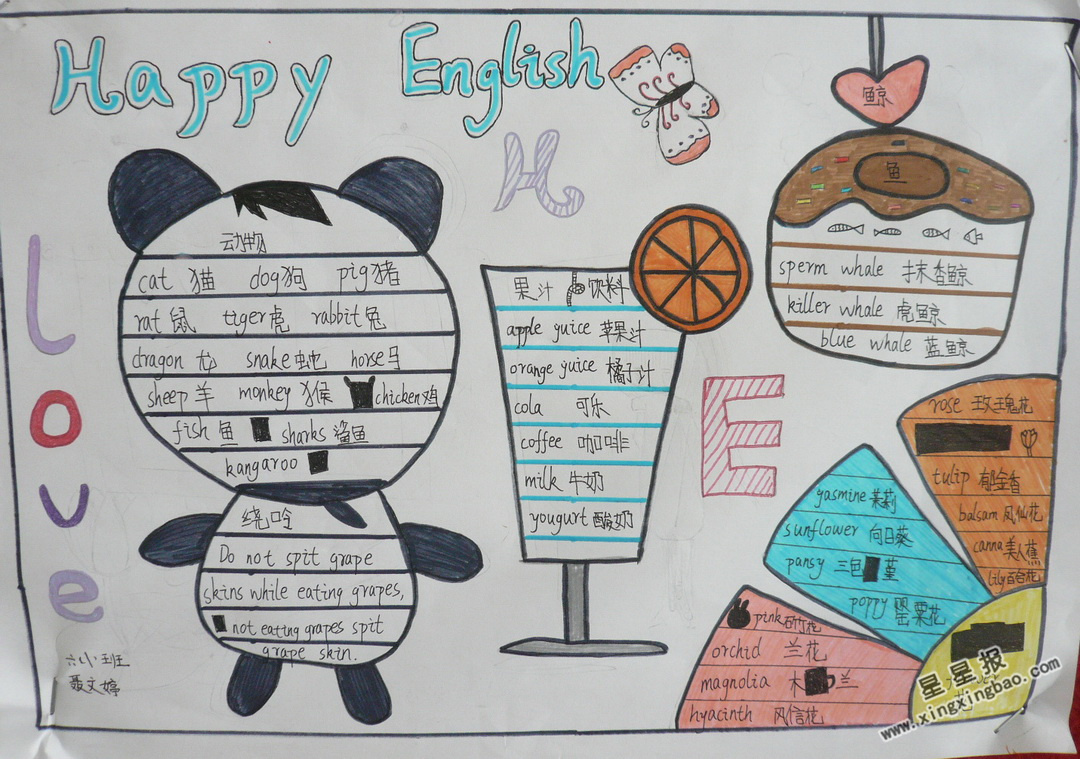 Happy English
H
E
Love
动物
cat 猫 dog狗 pig猪
rat 鼠 tiger虎 rabbit兔
dragon 龙 snake 蛇 horse马
sheep 羊 monkey 猴 chicken鸡
fish 鱼 sharks 鲨鱼
kangaroo
绕呤
Do not spit grape
skins while eating grapes,
not eating grapes spit
grape skin.
六小班
聂文婷
果汁 饮料
apple yuice 苹果汁
orange yuice 橘子汁
cola 可乐
coffee 咖啡
milk 牛奶
yougurt 酸奶
鲸
鱼
sperm whale 抹香鲸
killer whale 虎鲸
blue whale 蓝鲸
rose 玫瑰花
tulip 郁金香
balsam 凤仙花
canna 美人蕉
lily百合花
yasmine 茉莉
sunflower 向日葵
pansy 三色堇
poppy 罂粟花
pink石竹花
orchid 兰花
magnolia 木兰
hyacinth 风信花
花
星星报
www.xingxingbao.com